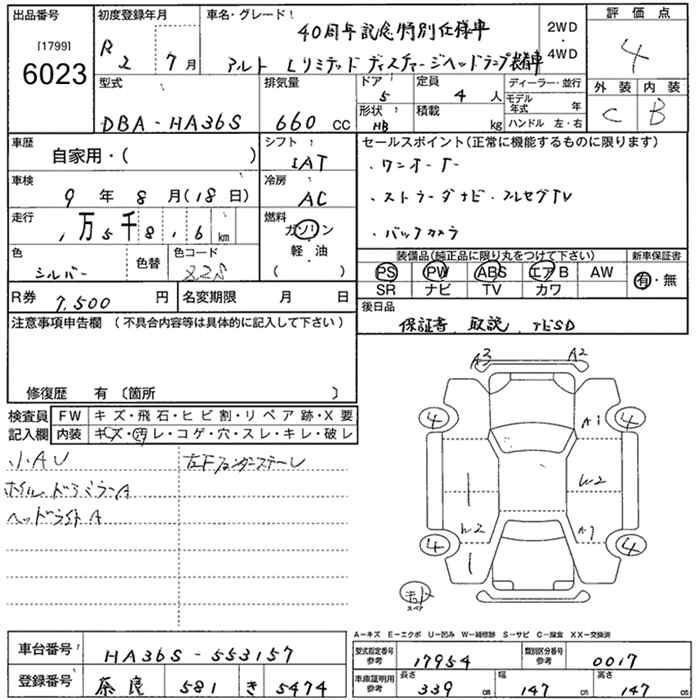 出品番号 初度登録年月 車名・グレード 2WD 評価点
[1799] 40周年記念特別仕様車
6023 R2 7月 アルト Lリミテッド ディスチャージヘッドランプ装着車 4WD 4
型式 排気量 ドア 定員 ディーラー・並行 外装 内装
DBA-HA36S 660 cc 5 4人 モデル年式 年 C B
形状 積載 ハンドル 左・右
HB kg
車歴 シフト セールスポイント(正常に機能するものに限ります)
自家用・( ) IAT ・ワンオーナー
車検 冷房 ・ストラーダナビ・フルセグTV
9年8月(18日) AC ・バックカメラ
走行 燃料
1万5千816km ガソリン
軽油
( )
色 色替 色コード 装備品(純正品に限り丸をつけて下さい) 新車保証書
シルバー Z2S PS PW ABS エアB AW 有・無
SR ナビ TV カワ
R券 7,500円 名変期限 月 日 後日品
注意事項申告欄 (不具合内容等は具体的に記入して下さい) 保証書、取説、
修復歴 有〔箇所 〕
検査員 FW キズ・飛石・ヒビ割・リペア跡・X要
記入欄 内装 キズ・汚レ・コゲ・穴・スレ・キレ・破レ
小AU 左Fフェンダーステーレ
ホイル、ドアミラーA
ヘッドライトA
A3 A2
4 A1 4
W2
W2 A1
4 4
スペア
A-キズ E-エクボ U-凹み W-補修跡 S-サビ C-腐食 XX-交換済
車台番号 HA36S-553157 型式指定番号 参考 17954 類別区分番号 参考 0017
登録番号 奈良 581 き 5474 車庫証明用 参考 長さ 339cm 幅 147cm 高さ 147cm